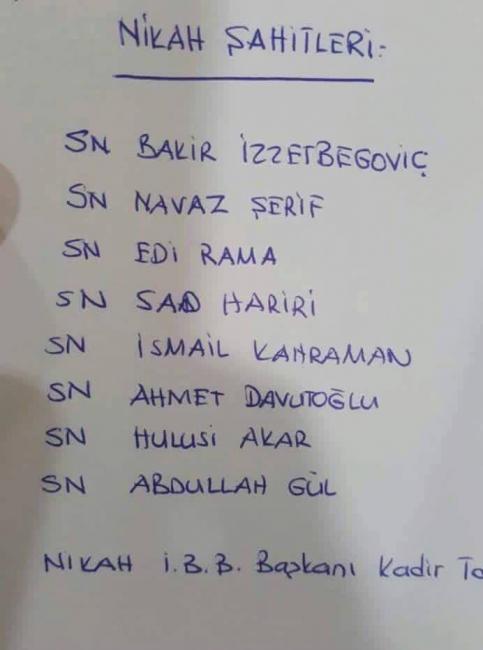 NİKAH ŞAHİTLERİ:-
SN BAKİR İZZETBEGOVİÇ
SN NAVAZ ŞERİF
SN EDİ RAMA
SN SAAD HARİRİ
SN İSMAİL KAHRAMAN
SN AHMET DAVUTOĞLU
SN HULUSİ AKAR
SN ABDULLAH GÜL
NIKAH İ.B.B. Başkanı Kadir To